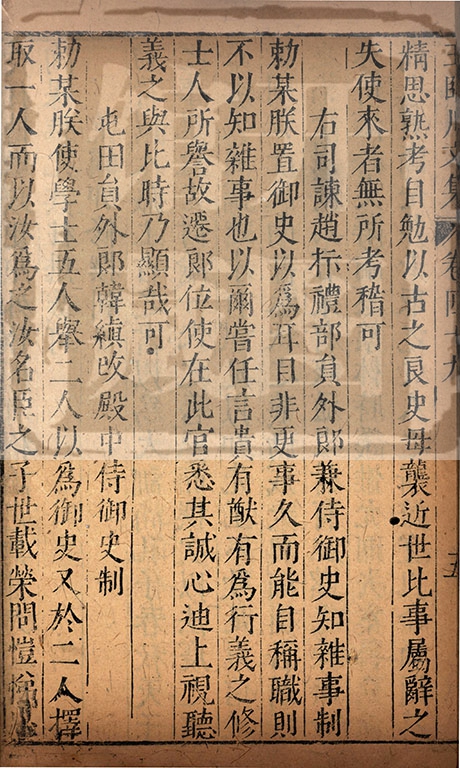 王臨川文集 卷四十九 十五
精思熟考自勉以古之良史毋襲近世比事屬辭之
失使來者無所考稽可
右司諫趙抃禮部員外郎兼侍御史知雜事制
勑某朕置御史以為耳目非更事久而能自稱職則
不以知雜事也以爾嘗任言責有猷有為行義之修
士人所譽故遷郎位使在此官悉其誠心迪上視聽
義之與比時乃顯哉可
屯田員外郎韓縝改殿中侍御史制
勑某朕使學士五人舉二人以為御史又於二人擇
取一人而以汝為之汝名臣之子世載榮問愷悌